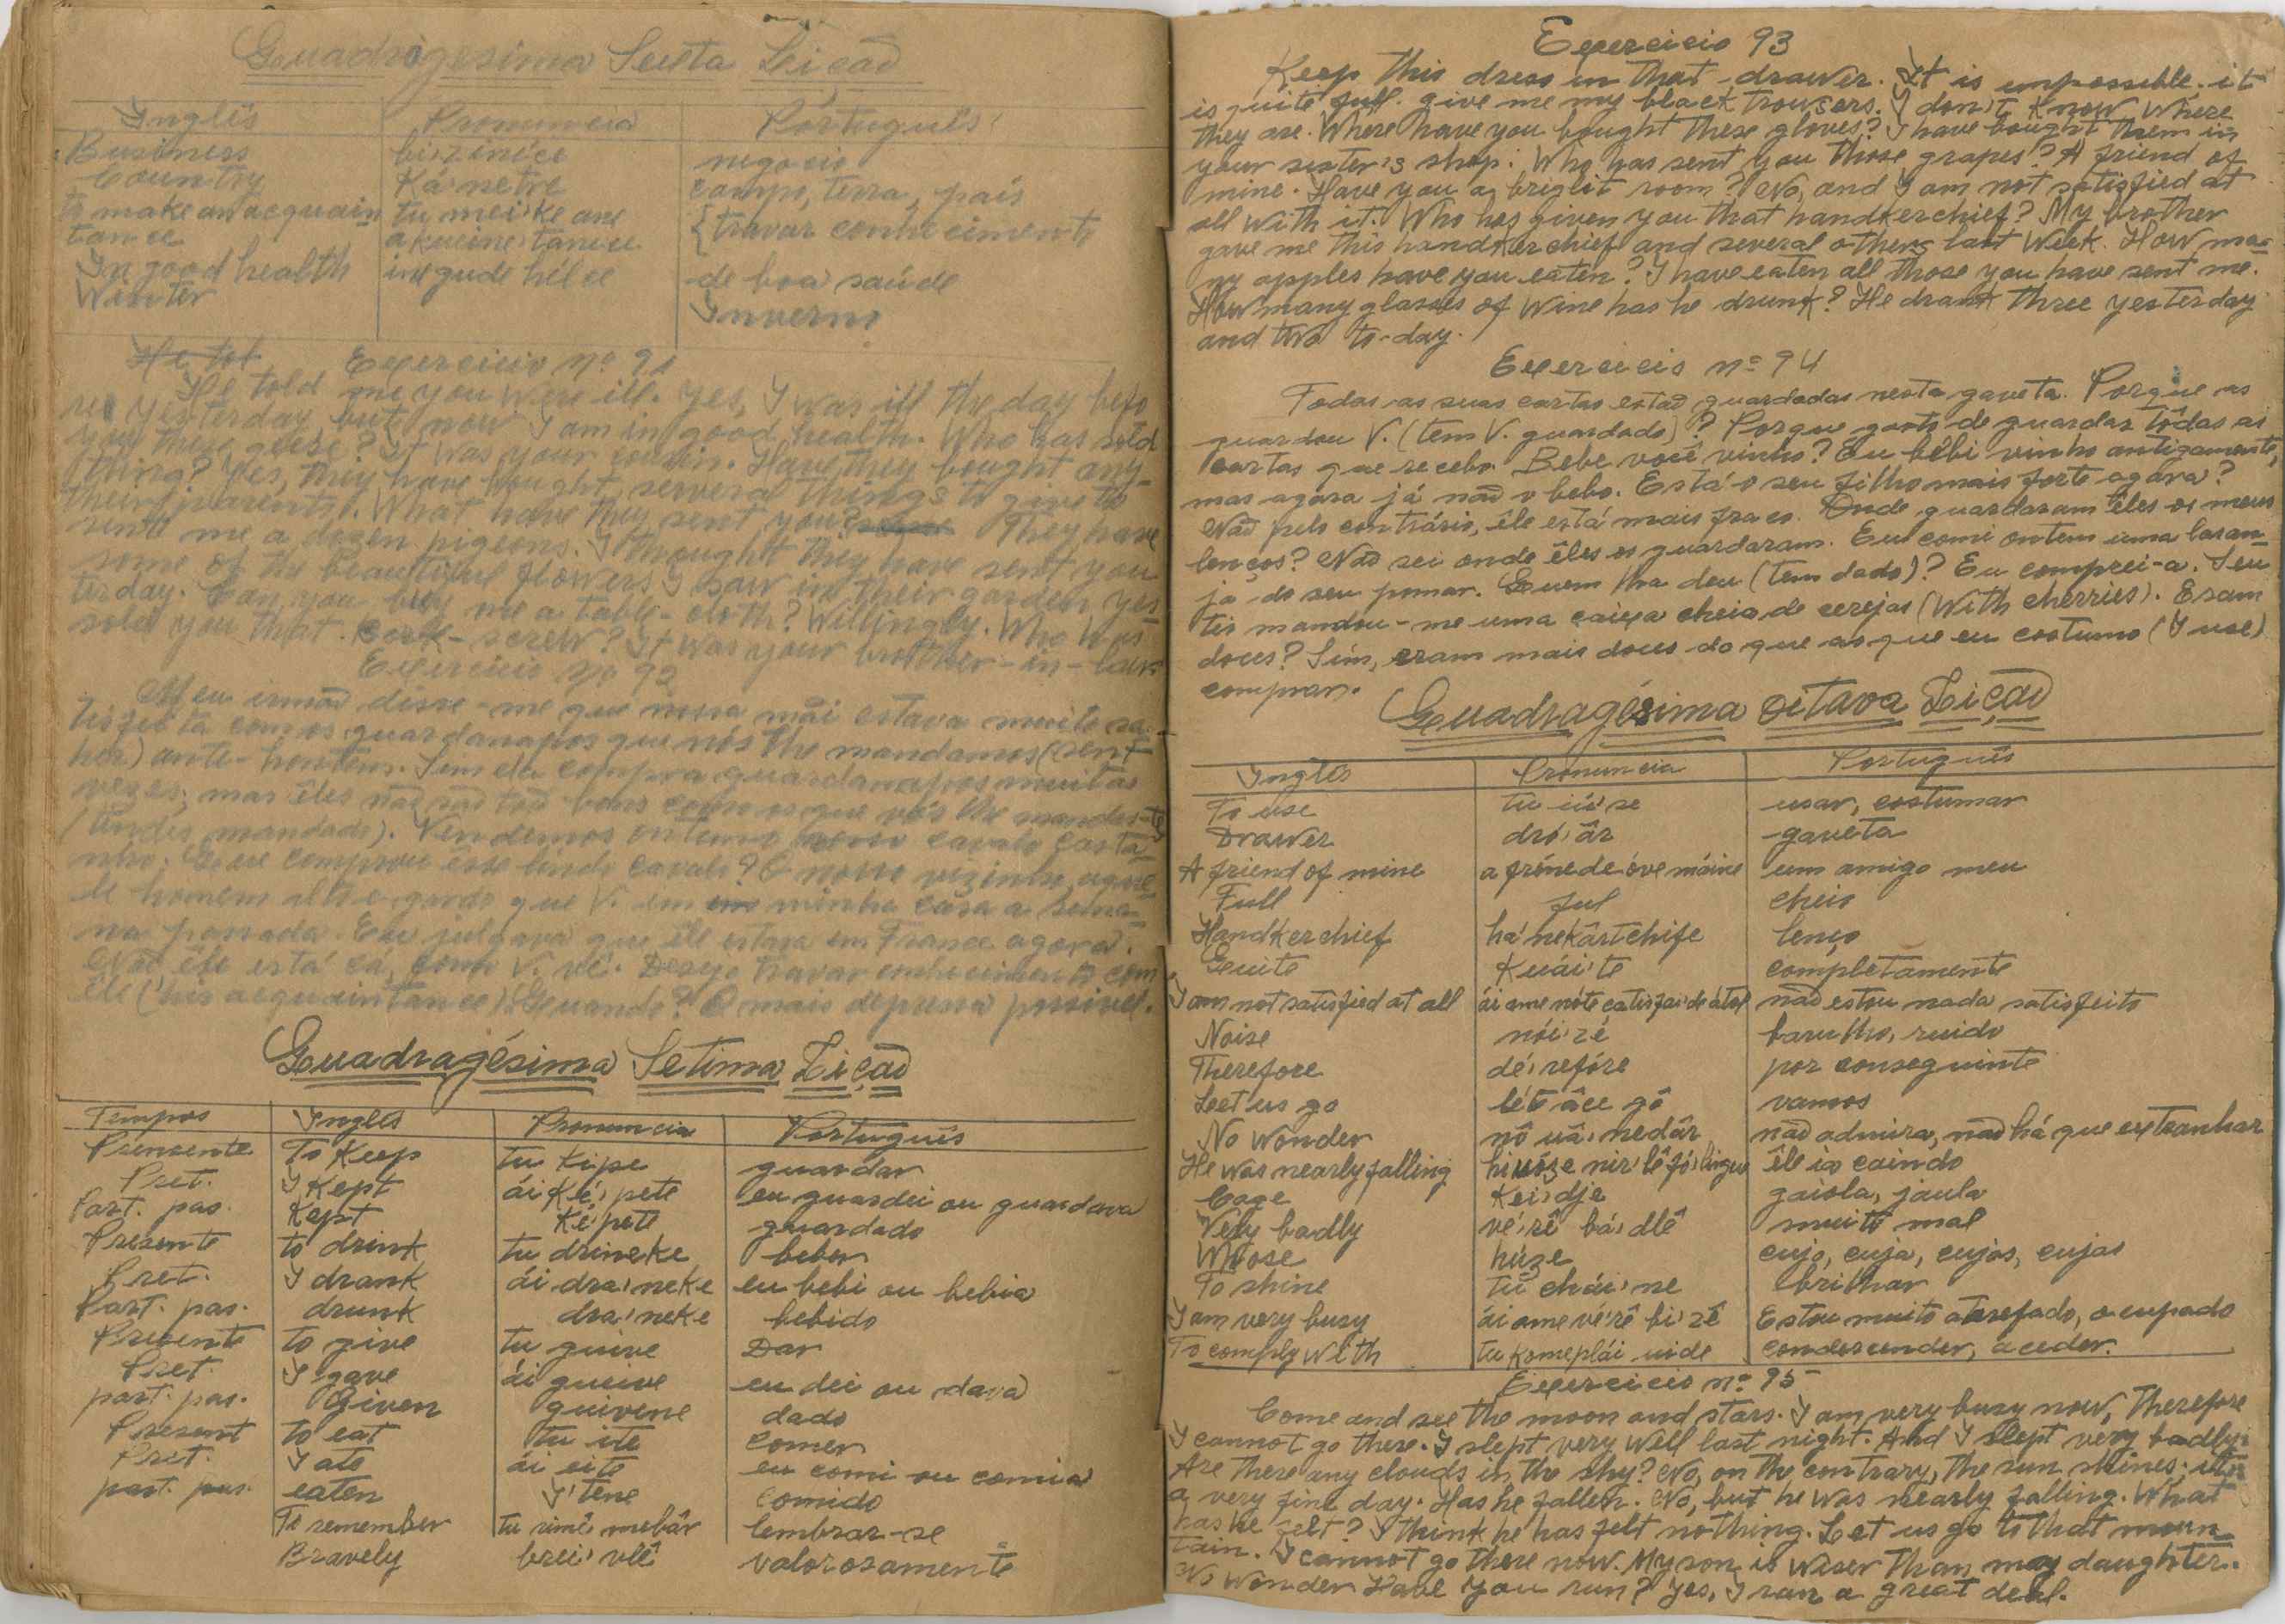 Quadrigesima Sexta Lição
Inglês Pronuncia Português
Business bi'zinéce negocio
Country Ká'netre campo, terra, país
to make an acquain tu mei'ke ane { travar conhecimento
tance akueine'tance
In good health ine gude hélce de boa saúde
Winter Inverno
He tol Exercicio nº 91
He told me you were ill. Yes, I was ill the day befo
re yesterday, but now I am in good health. Who has sold
you these geese? It was your cousin. Have they bought any-
thing? Yes, they have bought serveral things to give to
their parents. What have they sent you? They have
sent me a dozen pigeons. I thought they have sent you
some of the beautiful flowers I saw in their garden yes
terday. Can you buy me a table-cloth? Willingly. Who has
sold you that cork-screw? It was your brother-in-law.
Exercicio nº 92
Meu irmão disse-me que nossa mãi estava muito sa-
tisfeita com os guardanapos que nós lhe mandamos (sent
her) ante-hontem. Sim ela compra guardanapos muitas
vezes; mas êles não são tão bons como os que vós lhe mandaste
(tendes mandado). Vendemos ontem nosso cavalo casta
nho. Quem comprou esse lindo cavalo? O nosso vizinho, aque
le homem alto e gordo que V. em minha casa a sema-
na passada. Eu julgava que êle estava em France agora.
Não, êle está cá, como V. vê. Desejo travar conhecimento com
êle (his acquaintance). Quando? O mais depressa possivel.
Quadragésima Setima Lição
Tempos Inglês Pronuncia Português
Prensente To Keep tu Kipe guardar
Pret. I Kept ái Ké'pete eu guardei ou guardava
Part. pas. Kept Ké'pete guardado
Presente to drink tu drineke beber
Pret. I drank ái dra'neke eu bebi ou bebia
Part. pas. drunk dra'neke bebido
Presente to give tu guive Dar
Pret. I gave ái gueive eu dei ou dava
part. pas. Given guivene dado
Present to eat tu ite comer
Pret. I ate ái eite eu comi ou comia
part. pas. eaten I'tene comido
To remember tu rimê'mebâr lembrar-se
Bravely brei'vlê valorosamente
Exercicio 93
Keep this dress in that drawer. It is impossible. it
is quite full. give me my black trowsers. I don't Know where
they are. Where have you bought these gloves? I have bought them in
your sister's shop. Who has sent you those grapes? A friend of
mine. Have you a bright room? No, and I am not satisfied at
all with it. Who has given you that handkerchief? My brother
gave me this handkerchief and several others last week. How ma-
ny apples have you eaten? I have eaten all those you have sent me.
How many glasses of wine has he drunk? He drank three yesterday
and two to-day.
Exercicio nº 94
Todas as suas cartas estão guardadas nesta gaveta. Porque as
guardou V. (tem V. guardado)? Porque gosto de guardar tôdas as
cartas que recebo. Bebe você vinho? Eu bêbi vinho antigamente,
mas agora já não o bebo. Está o seu filho mais forte agora?
Não pelo contrário, êle está mais fraco. Onde guardaram êles os meus
lenços? Não sei onde êles os guardaram. Eu comi ontem uma laran-
ja do seu pomar. Quem lha deu (tem dado)? Eu comprei-a. Seu
tio mandou-me uma caixa cheia de cerejas (with cherries). Eram
doces? Sim, eram mais doces do que as que eu costumo (I use)
comprar.
Quadragésima oitava Lição
Inglês Pronuncia Português
To use tu iú'se usar, costumar
Drawer dró'âr gaveta
A friend of mine a frénede óve máine um amigo meu
Full ful cheio
Handkerchief há'nekârtchife lenço
Quite Kuái'te completamente
I am not satisfied at all ái ame nóte catisfaide átol não estou nada satisfeito
Noise nói'zé barulho, ruido
Therefore dé'refóre por conseguinte
Let us go léte âce gô vamos
No wonder nô uâ'nedâr não admira, não há que extranhar
He was nearly falling hi uóze nir'lê fó'lingue êle ia caindo
Cage Kei'dje gaiola, jaula
Very badly vé'rê bá'dlê muito mal
Whose húze cujo, cuja, cujos, cujas
To shine tu chái'ne brilhar
I am very busy ái ame vé'rê bi'zê Estou muito atarefado, ocupado
To comply with tu Komeplái uide condescender, aceder.
Exercicio nº 95
Come and see the moon and stars. I am very busy now, Therefore
I cannot go there. I slept very well last night. And I slept very badly.
Are there any clouds in the sky? No, on the contrary, the sun shines; it is
a very fine day. Has he fallen. No, but he was nearly falling. What
has he felt? I think he has felt nothing. Let us go to that moun
tain. I cannot go there now. My son is wiser than may daughter.
No wonder Have you run? Yes, I ran a great deal.